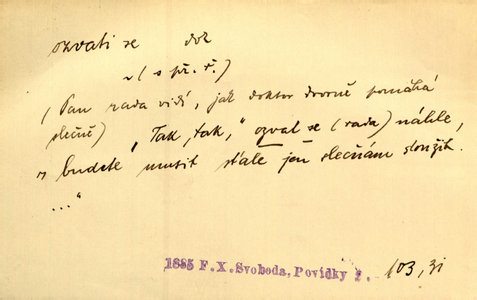 ozvati se dok
~ (s př. ř.)
(Pan rada vidí, jak doktor dvorně pomáhá
slečně) „Tak, tak," ozval se (rada) náhle,
„budete musit stále jen slečnám sloužit.
..."
1885 F.X.Svoboda, Povídky 2. 103, 31